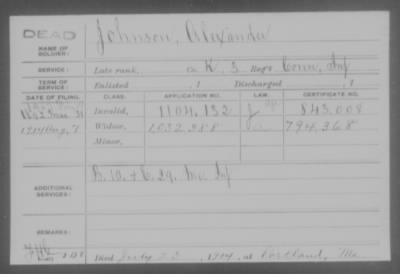 DEAD
NAME OF SOLDIER: Johnson, Alexander
SERVICE: Late rank, Co. K, 3 Reg't Conn. Inf
TERM OF SERVICE: Enlisted , 1 Discharged , 1
DATE OF FILING. CLASS. APPLICATION NO. LAW. CERTIFICATE NO.
1892 Mar. 31 Invalid, 1104.132 843.008
1914 Aug. 7 Widow, 1,032,288 794,368
Minor,
ADDITIONAL SERVICES: B. 10. & C. 29. Me. Inf
REMARKS:
Died July 22, 1914, at Portland, Me.